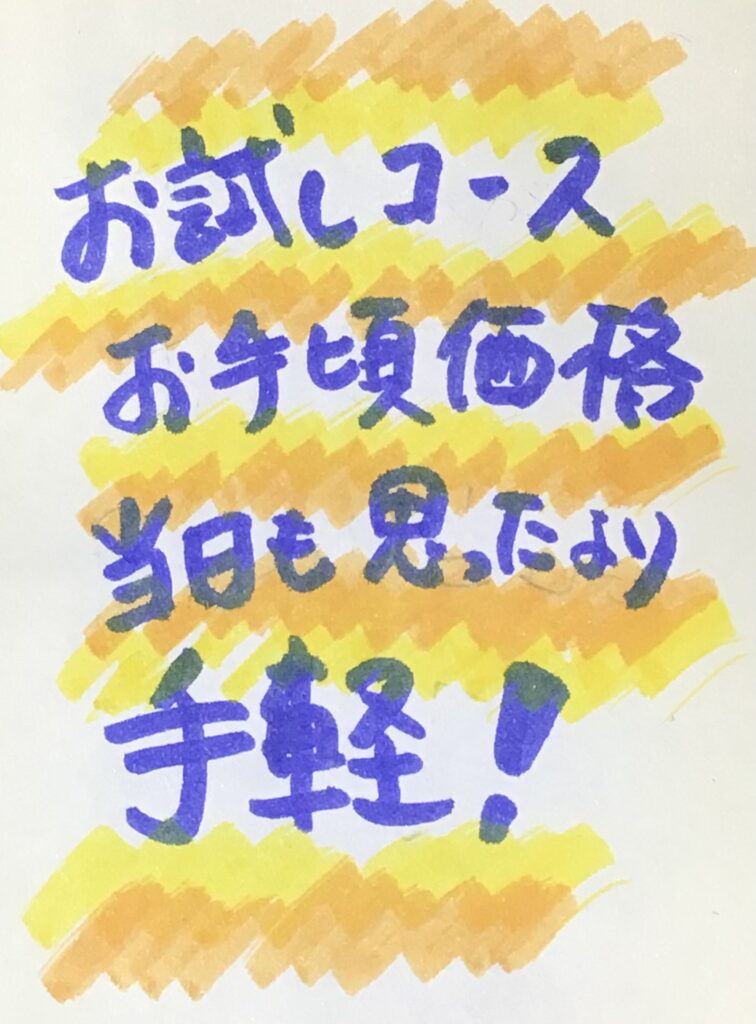 お試しコース
お手頃価格
当日も思ったより
手軽!